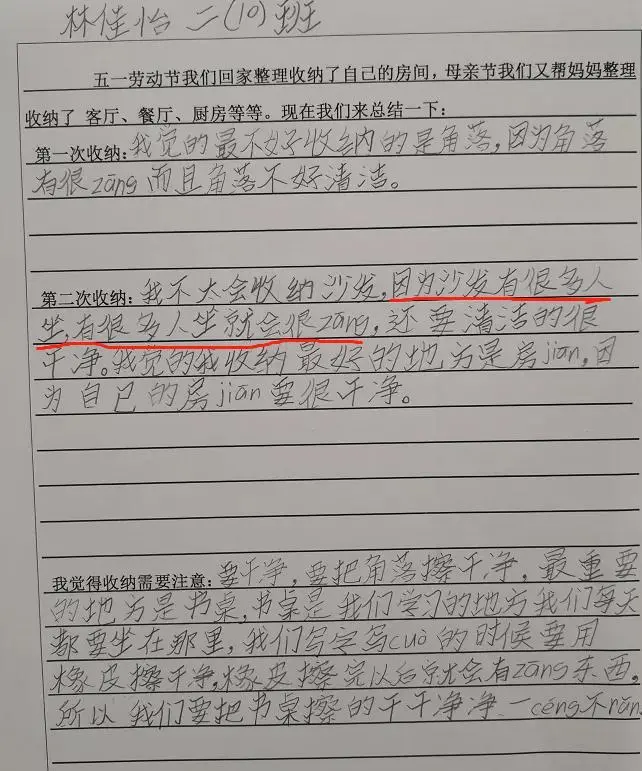 林佳怡 二(10)班
五一劳动节我们回家整理收纳了自己的房间，母亲节我们又帮妈妈整理
收纳了 客厅、餐厅、厨房等等。现在我们来总结一下：
第一次收纳：我觉的最不好收纳的是角落，因为角落
有很zāng而且角落不好清洁。
第二次收纳：我不太会收纳沙发，因为沙发有很多人
坐，有很多人坐就会很zāng，还要清洁的很
干净。我觉的我收纳最好的地方是房jiān，因
为自己的房jiān要很干净。
我觉得收纳需要注意：要干净，要把角落擦干净，最重要
的地方是书桌，书桌是我们学习的地方我们每天
都要坐在那里，我们写字写cuò的时候要用
橡皮擦干净，橡皮擦完以后就会有zāng东西，
所以我们要把书桌擦的干干净净一céng不rǎn.